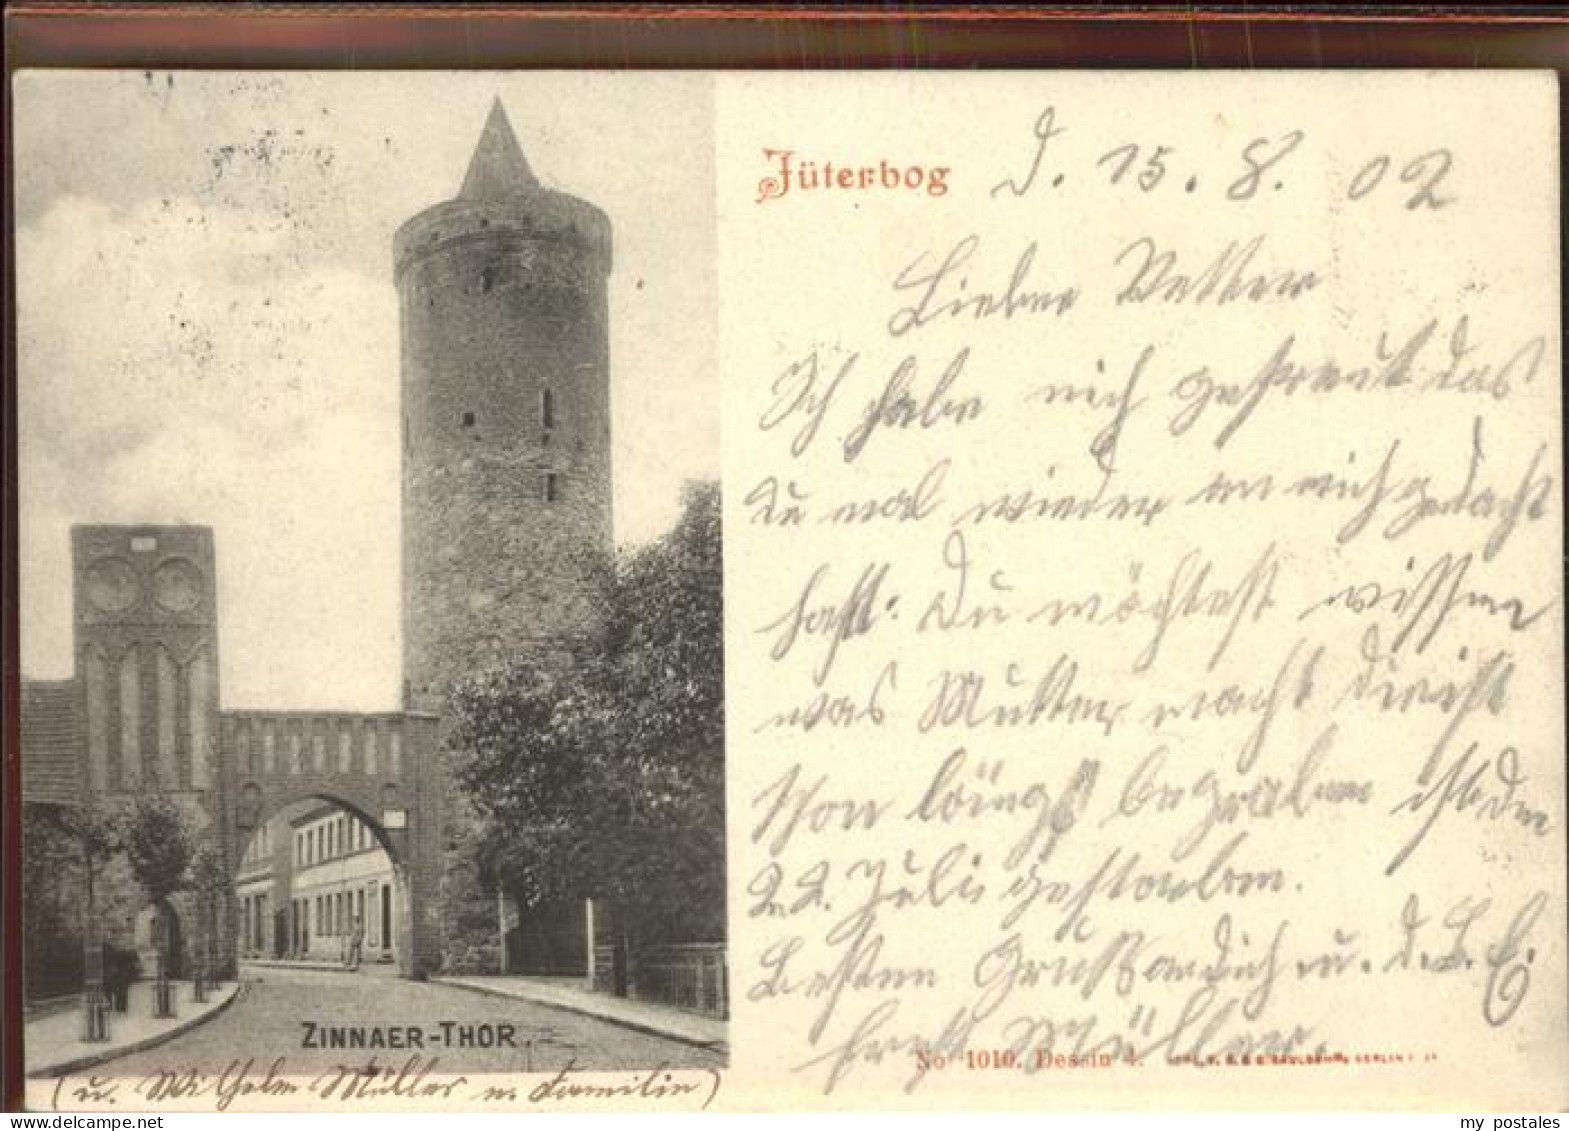 Jüterbog
d. 15. 8. 02
Lieber Vetter
Ich habe mich gefreut das
Du mal wieder an mich gedacht
hast. Du möchtest wissen
was Mutter macht die ist
schon längst begraben ist den
22. Juli gestorben.
Besten Gruß an Dich u. d. L. E.
Ernst Müller.
ZINNAER-THOR.
No 1010. Dessin 4.
(u. Wilhelm Müller u. Familie)
my postales